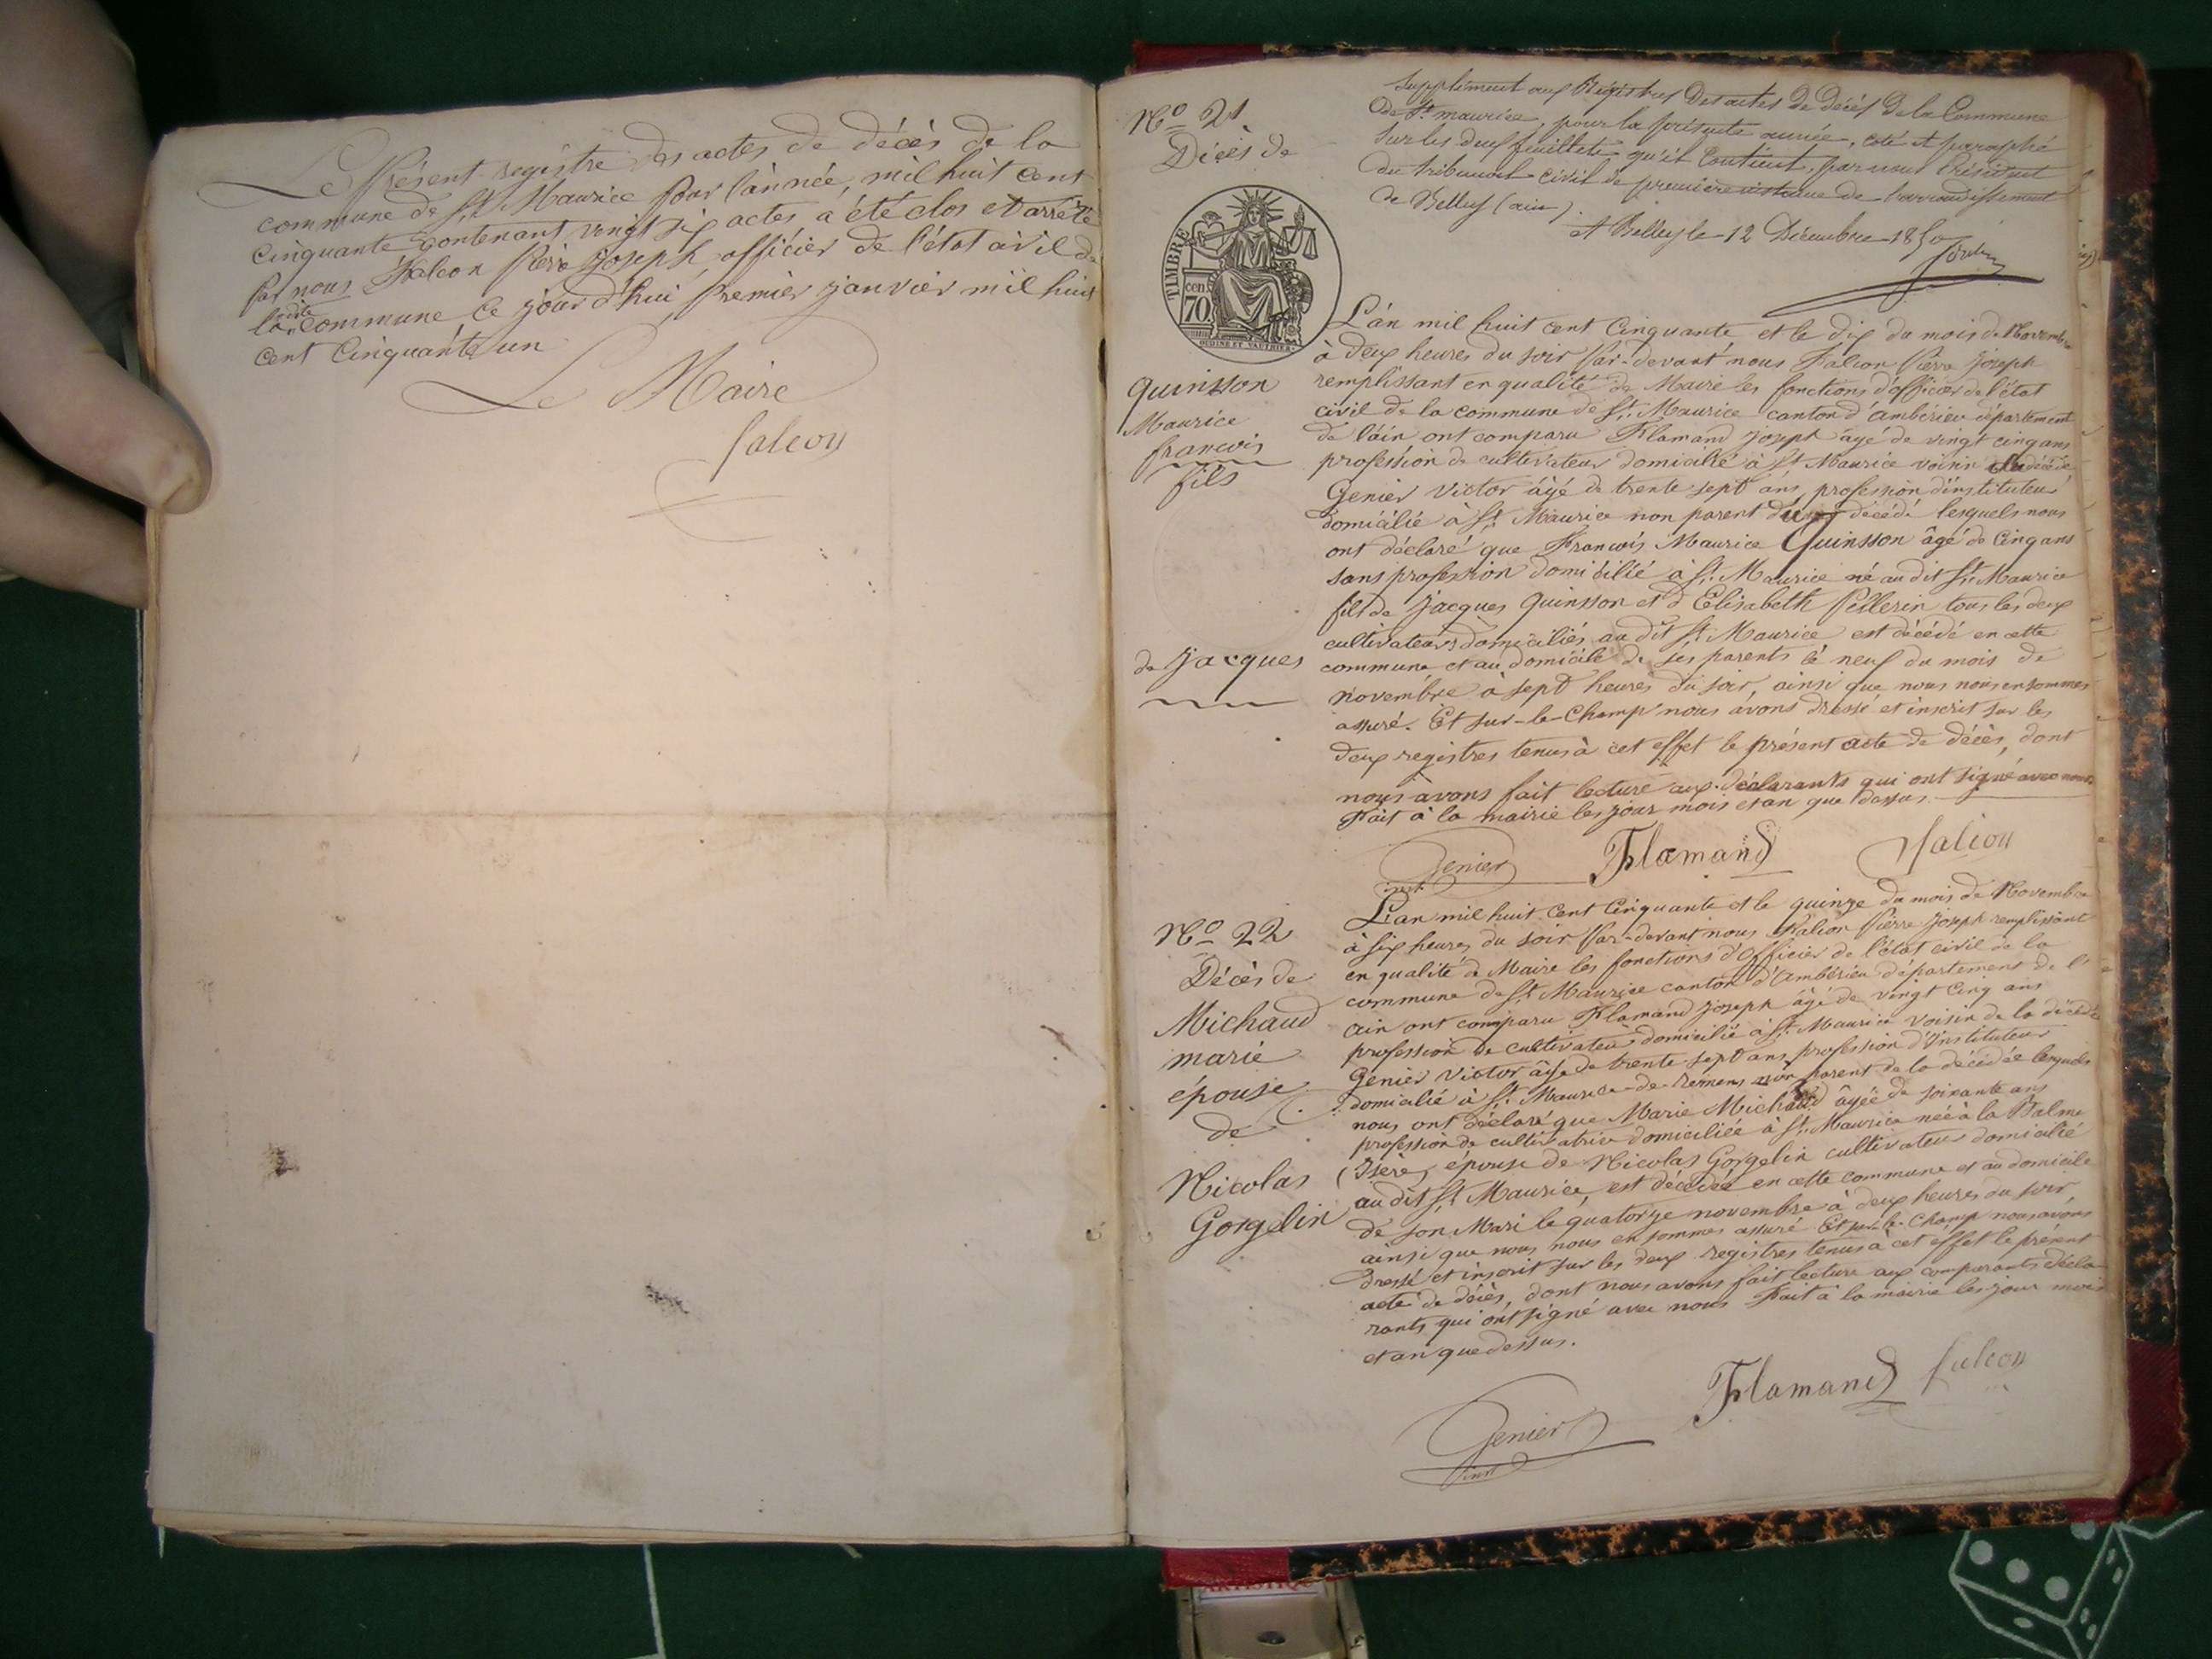 Le Présent registre des actes de décès de la
commune de St Maurice pour l'année, mil huit cent
cinquante contenant vingt six actes a été clos et arrêté
par nous Falcon Pierre Joseph, officier de l'état civil de
la dite commune ce jour d'hui, premier janvier mil huit
cent cinquante un
Le Maire
falcon
Supplément aux Régistres des actes de décès de la Commune
de St maurice, pour la présente année, coté et paraphé
sur les deux feuillets qu'il contient, par nous Président
du tribunal civil de première instance de l'arrondissement
de Belley (ain).
A Belley le 12 Décembre 1850
No 21
Décès de
TIMBRE
70 cen
OUDINE ET VAUTHIER
quinsson
Maurice
francois
fils
de Jacques
L'an mil huit cent Cinquante et le dix du mois de Novembre
à deux heures du soir Par-devant nous Falcon Pierre Joseph
remplissant en qualité de Maire les fonctions d'officier de l'état
civil de la commune de St. Maurice canton d'ambérieu département
de l'ain ont comparu Flamand Joseph âgé de vingt cinq ans
profession de cultivateur domicilié à St Maurice voisin du décédé
Genier Victor âgé de trente sept ans, profession d'instituteur
domicilié à St. Maurice non parent du décédé lesquels nous
ont déclaré que Francois Maurice Quinsson âgé de Cinq ans
sans profession domicilié à St. Maurice né au dit St. Maurice
fils de Jacques Quinsson et d'Elisabeth Pellerin tous les deux
cultivateurs domiciliés au dit St. Maurice est décédé en cette
commune et au domicile de ses parents le neuf du mois de
novembre à sept heures du soir, ainsi que nous nous en sommes
assuré. Et sur-le-Champ nous avons dressé et inscrit sur les
deux registres tenus à cet effet le présent acte de décès, dont
nous avons fait lecture aux déclarants qui ont signé avec nous
Fait à la mairie les jour mois et an que dessus.
Genier Flamand falcon
inst
No 22
Décès de
Michaud
marie
épouse
de
Nicolas
Gorgelin
L'an mil huit cent Cinquante et le quinze du mois de Novembre
à six heures du soir Par-devant nous Falcon Pierre Joseph remplissant
en qualité de Maire les fonctions d'Officier de l'état civil de la
commune de St. Maurice canton d'ambérieu département de l'
ain ont comparu Flamand Joseph âgé de vingt Cinq ans
profession de cultivateur domicilié à St. Maurice voisin de la décédée
Genier Victor âgé de trente sept ans, profession d'Instituteur
domicilié à St. Maurice-de-Remens non parent de la décédée lesquels
nous ont déclaré que Marie Michaud âgée de soixante ans
profession de cultivatrice domiciliée à St. Maurice née à la Balme
(Isère) épouse de Nicolas Gorgelin cultivateur domicilié
au dit St Maurice, est décédée en cette commune et au domicile
de son Mari le quatorze novembre à deux heures du soir,
ainsi que nous nous en sommes assuré Et sur-le-Champ nous avons
dressé et inscrit sur les deux registres tenus à cet effet le présent
acte de décès, dont nous avons fait lecture aux comparants décla
rants qui ont signé avec nous Fait à la mairie les jour mois
et an que dessus.
Genier Flamand falcon
inst